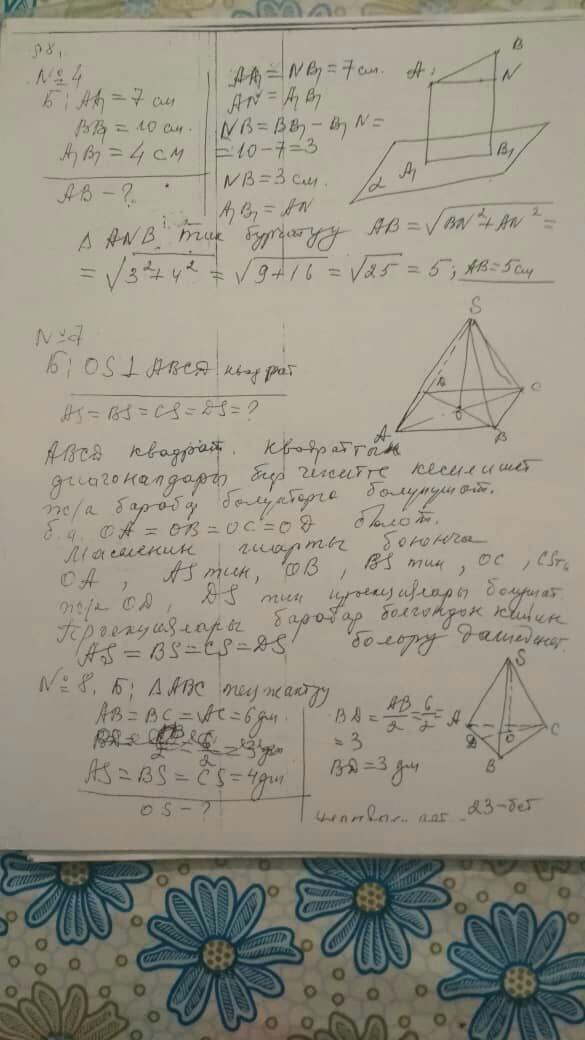 № 4
Б; AA₁ = 7 см
BB₁ = 10 см.
A₁B₁ = 4 см
AB - ?
AA₁ = NB₁ = 7 см.
AN = A₁B₁
NB = BB₁ - B₁N =
= 10 - 7 = 3
NB = 3 см.
A₁B₁ = AN
B
A
N
A₁
B₁
α
Δ ANB тик бурчтуу AB = √BN² + AN² =
= √3² + 4² = √9 + 16 = √25 = 5; AB = 5 см
№ 7
Б; OS ⊥ ABCD квадрат
AS = BS = CS = DS = ?
S
D
C
O
A
B
ABCD квадрат. Квадраттын
диагоналдары бир чекитте кесилишет
ж/а барабар болукторго болунушот.
б.а. OA = OB = OC = OD болот.
Маселенин шарты боюнча
OA, AS тин, OB, BS тин, OC, CS
ж/а OD, DS тин проекциялары болушат
Проекциялары барабар болгондон кийин
AS = BS = CS = DS болору далилденет.
№ 8. Б; Δ ABC тең жактуу
AB = BC = AC = 6 дм.
AS = BS = CS = 4 дм
OS - ?
BD = AB/2 = 6/2 =
= 3
BD = 3 дм
S
A
C
D
O
B
23-бет